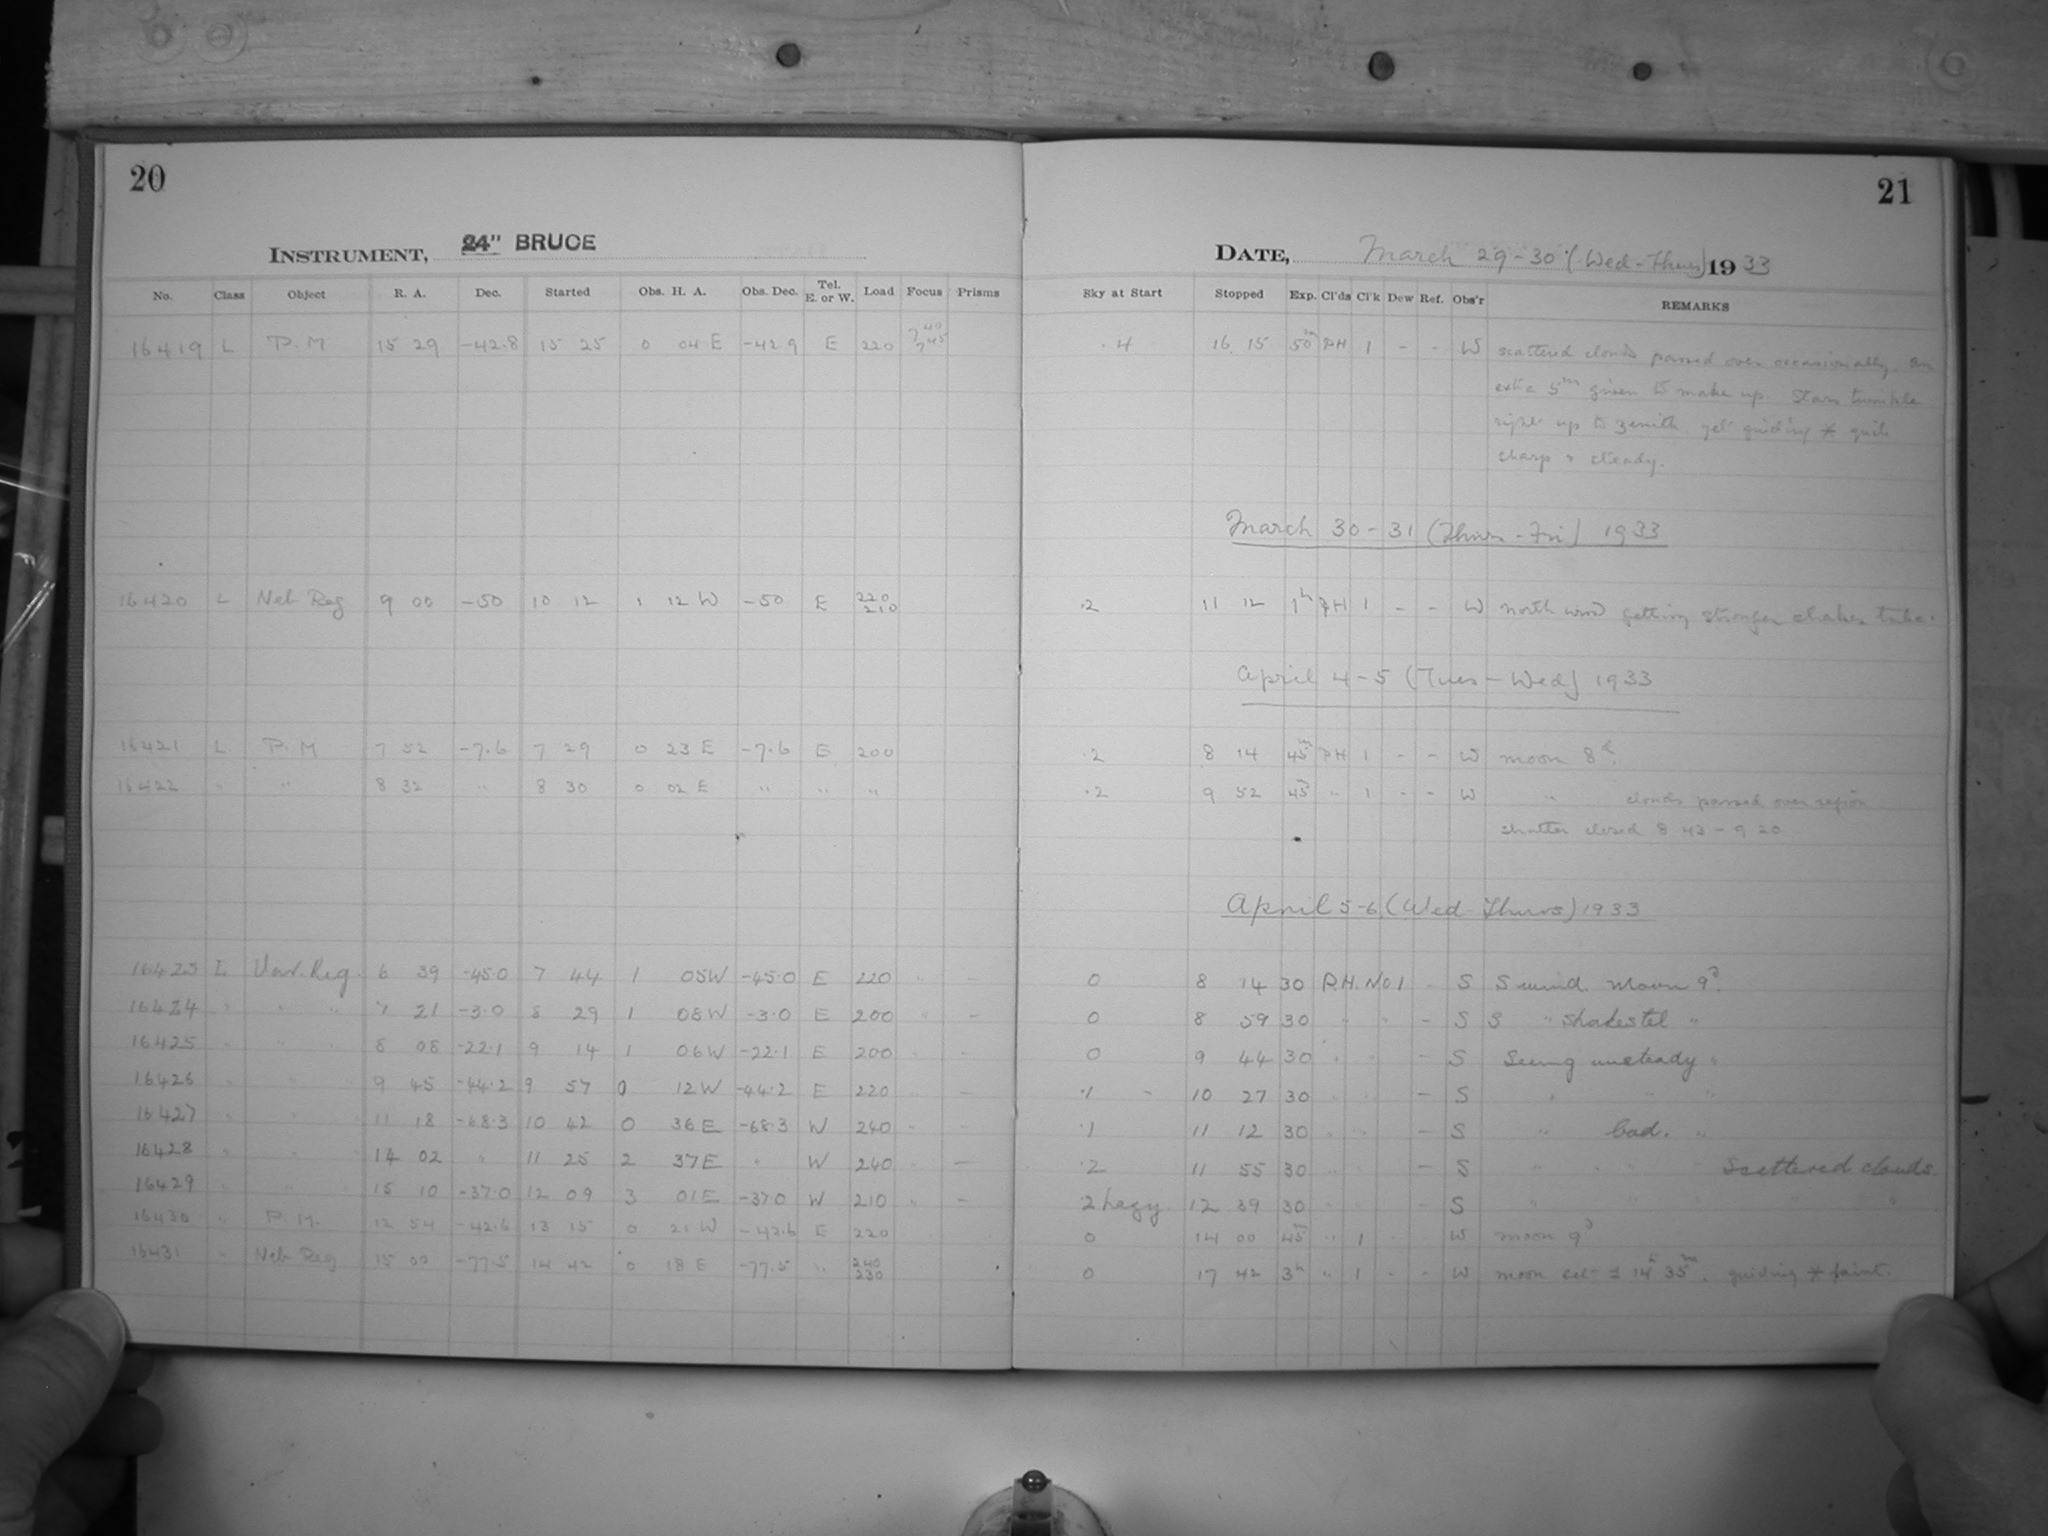 20
INSTRUMENT, 24" BRUCE
No. Class Object R. A. Dec. Started Obs. H. A. Obs. Dec. Tel. E. or W. Load Focus Prisms
16419 L P.M 15 29 -42.8 15 25 0 04 E -42.9 E 220 7 40 7 45
16420 L Neb Reg 9 00 -50 10 12 1 12 W -50 E 220 210
16421 L P.M 7 52 -7.6 7 29 0 23 E -7.6 E 200
16422 " " 8 32 " 8 30 0 02 E " " "
16423 L Var. Reg. 6 39 -45.0 7 44 1 05 W -45.0 E 220 "
16424 " " " 7 21 -3.0 8 29 1 08 W -3.0 E 200 " -
16425 " " " 8 08 -22.1 9 14 1 06 W -22.1 E 200 " -
16426 " " 9 45 -44.2 9 57 0 12 W -44.2 E 220 " -
16427 " " 11 18 -68.3 10 42 0 36 E -68.3 W 240 " -
16428 " " 14 02 " 11 25 2 37 E " W 240 " -
16429 " " 15 10 -37.0 12 09 3 01 E -37.0 W 210 " -
16430 " P.M. 12 54 -42.6 13 15 0 21 W -42.6 E 220
16431 " Neb Reg 15 00 -77.5 14 42 0 18 E -77.5 " 240 230
21
DATE, March 29-30 (Wed-Thurs) 1933
Sky at Start Stopped Exp. Cl'ds Cl'k Dew Ref. Obs'r REMARKS
.4 16 15 50m PH 1 - - W scattered clouds passed over occasionally. An
extra 5m given to make up. Stars tremble
right up to zenith, yet guiding * quite
sharp & steady.
March 30-31 (Thurs-Fri) 1933
.2 11 12 1h PH 1 - - W north wind getting stronger shakes tube.
April 4-5 (Tues-Wed) 1933
.2 8 14 45m PH 1 - - W moon 8d.
.2 9 52 45 " 1 - - W " clouds passed over region
shutter closed 8 43 - 9 20
April 5-6 (Wed-Thurs) 1933
0 8 14 30 P.H. No 1 - S S wind. Moon 9d.
0 8 59 30 " " - S S " shakes tel "
0 9 44 30 " " - S Seeing unsteady "
.1 - 10 27 30 " " - S " " "
.1 11 12 30 " " - S " bad. "
.2 11 55 30 " " - S " " " Scattered clouds.
2 hazy. 12 39 30 " " S " " " "
0 14 00 45m " 1 - W moon 9d
0 17 42 3h " 1 - - W moon set ± 14h 35m. guiding * faint.